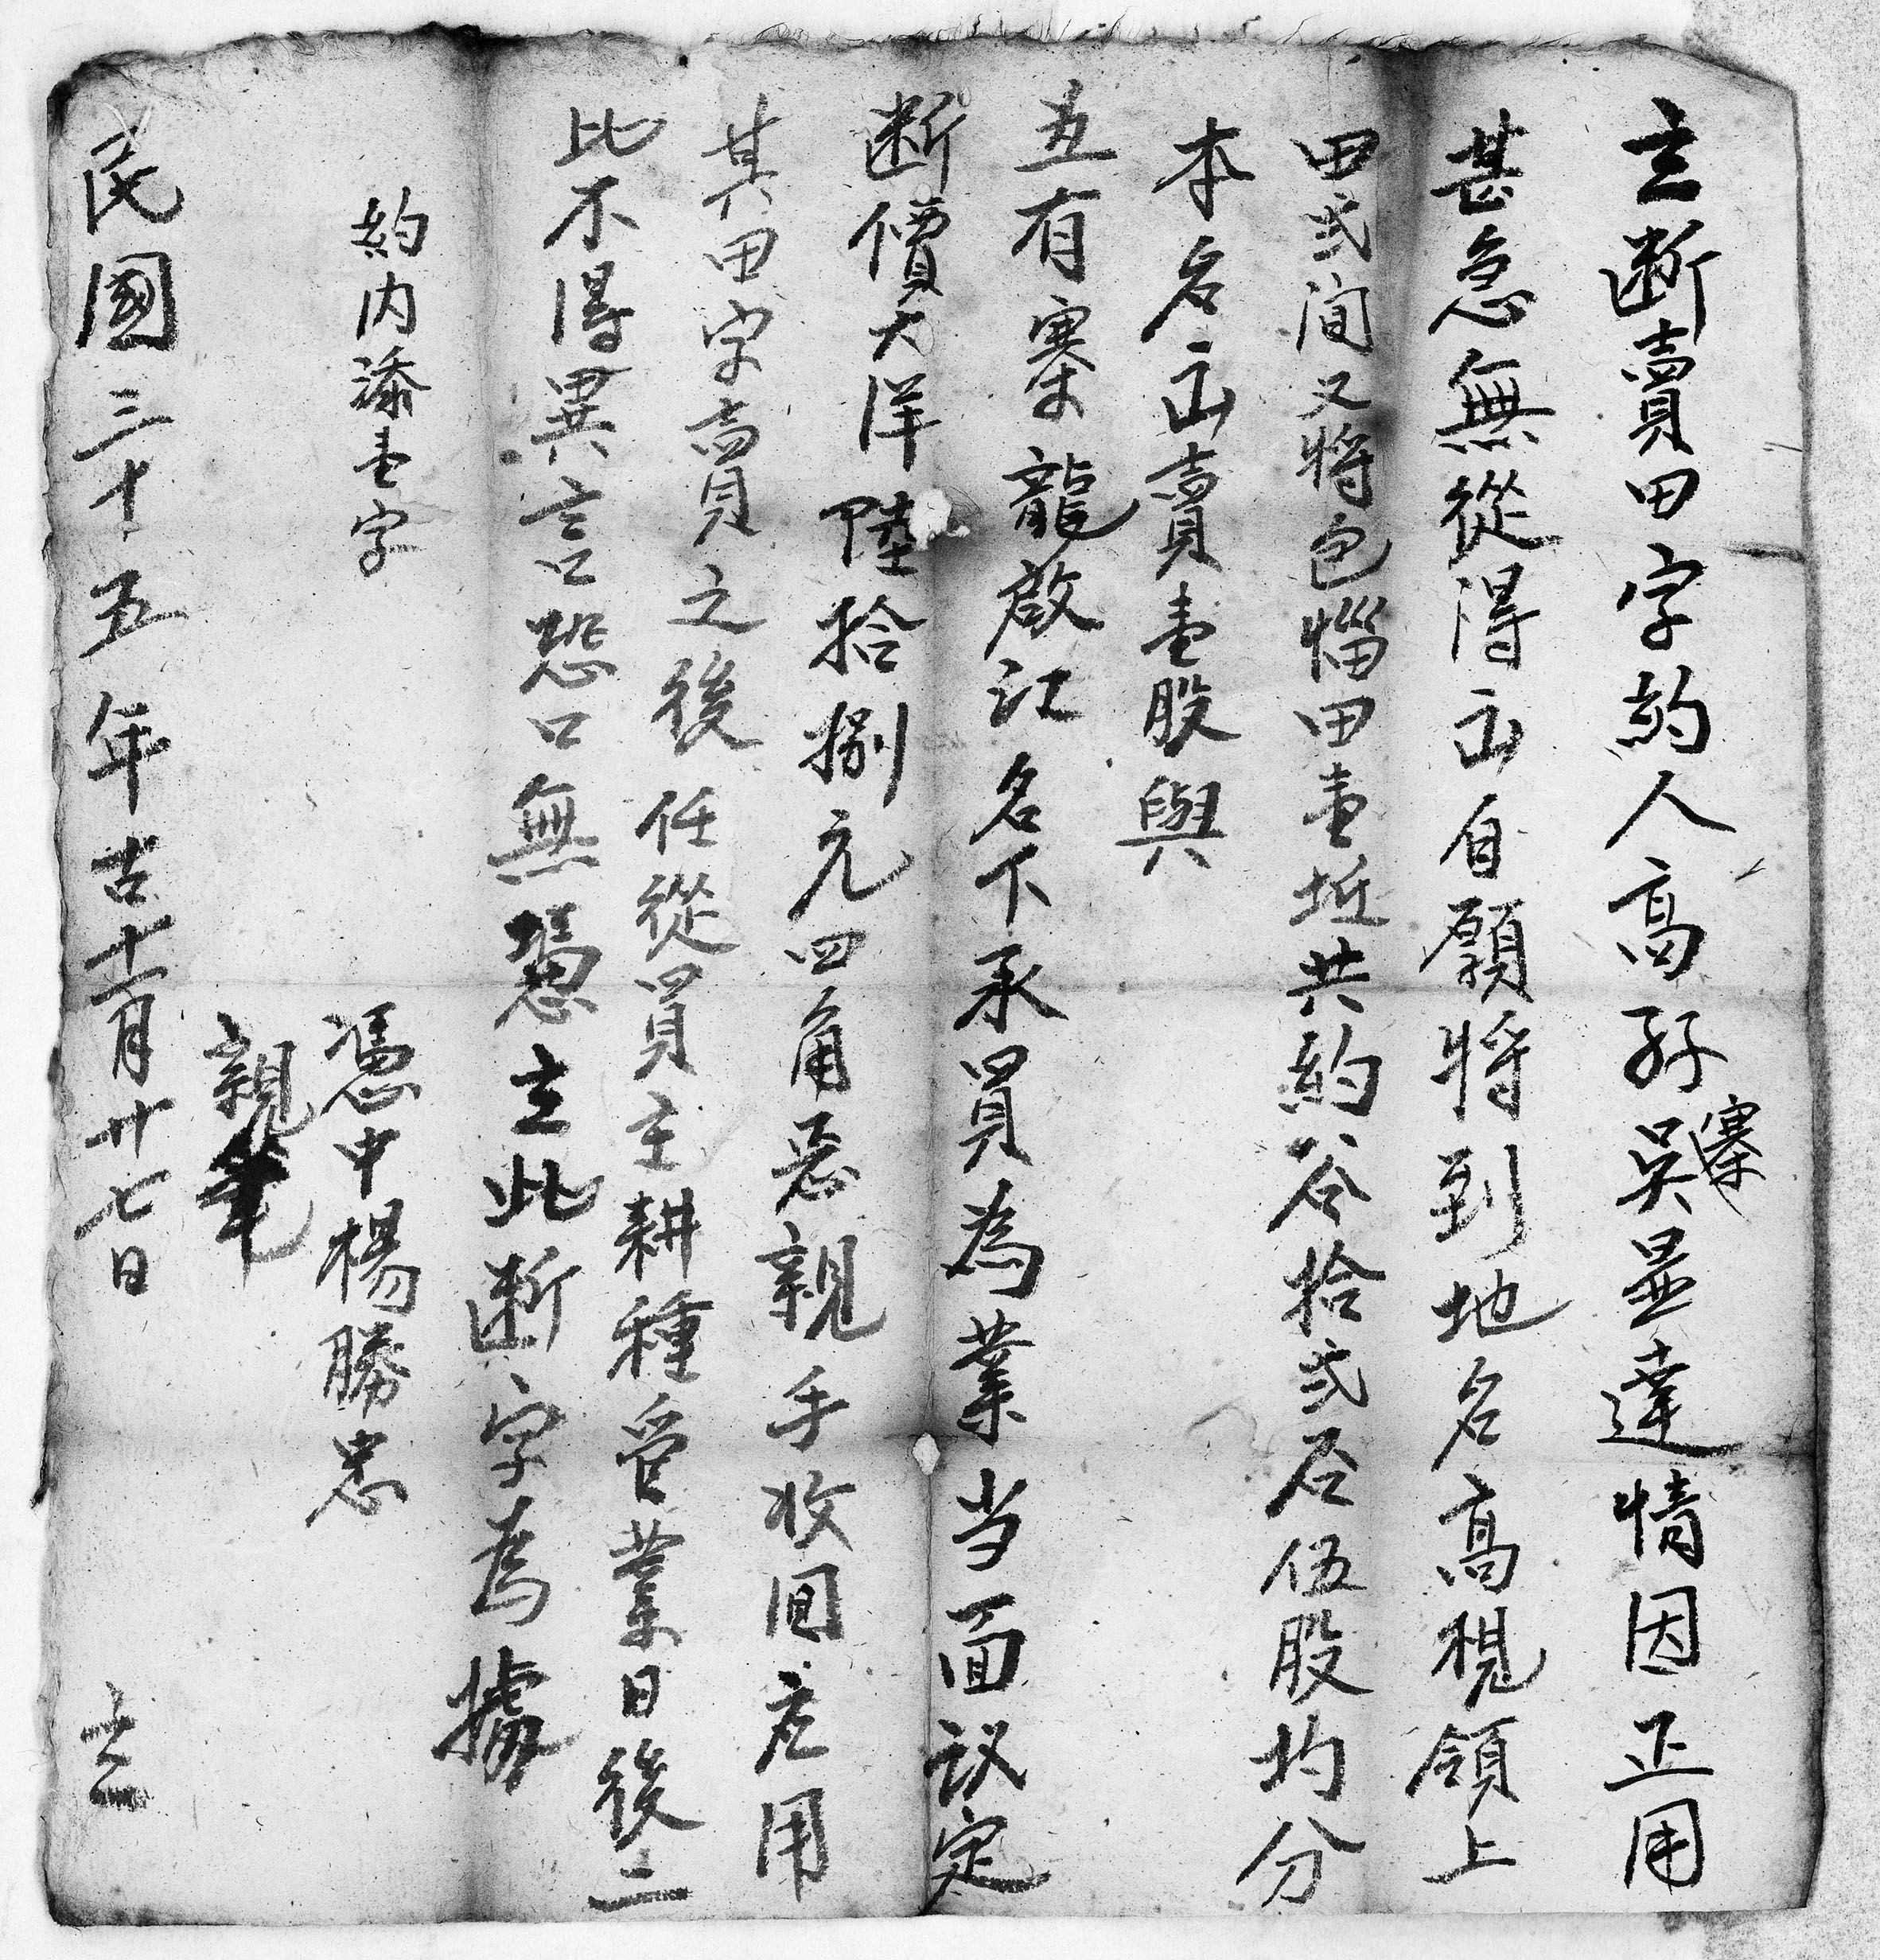 立断賣田字約人高孖寨吳显達情因正用
甚急無從得出自願將到地名高視領上
田弍间又將包惱田壹坵共約谷拾弍石伍股均分
本名出賣壹股與
五有寨龍啟江名下承買為業当面议定
断價大洋陸拾捌元四角整親手收回应用
其田字賣之後任從買主耕種管業日後二
比不得異言恐口無憑立此断字為據
約内添壹字
憑中楊勝忠
親筆
民國三十五年古十一月廿七日 立